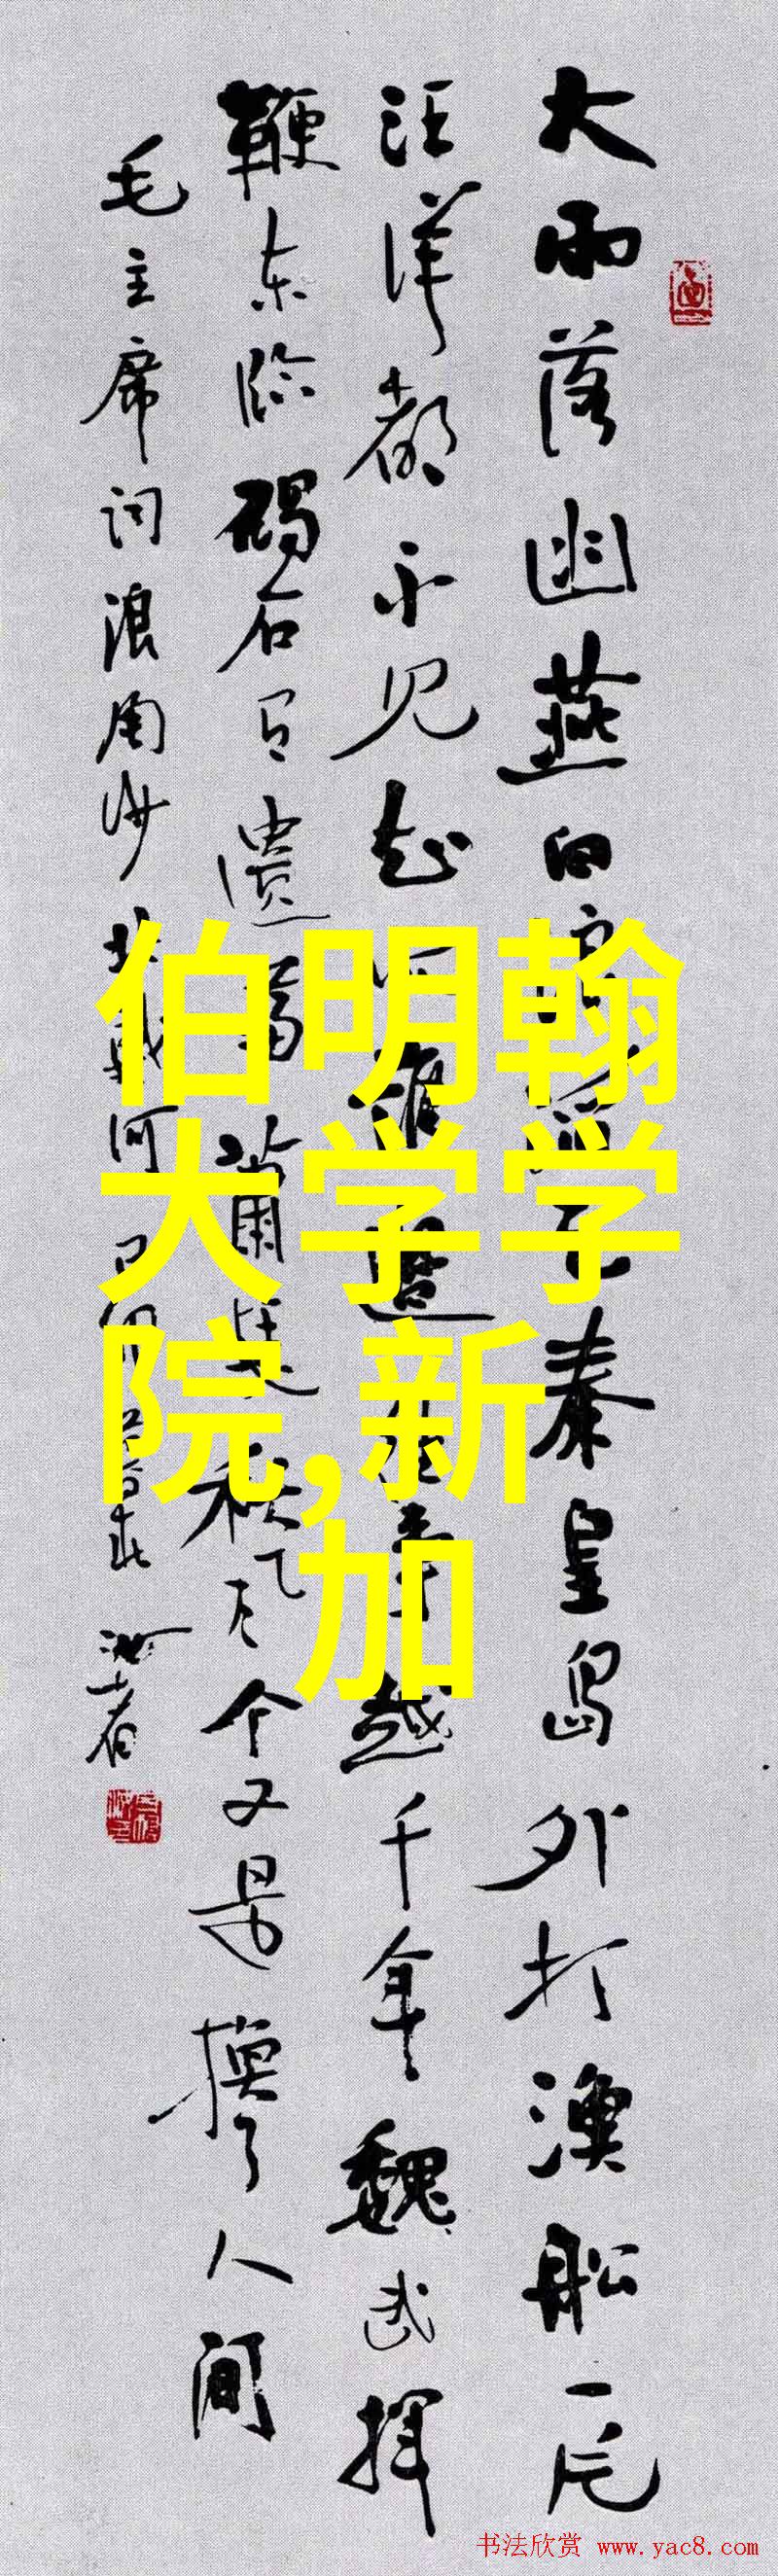 大雨落幽燕白浪滔天秦皇岛外打渔船一片
汪洋都不见知向谁边往事越千年魏武挥
鞭东临碣石有遗篇萧瑟秋风今又是换了人间
毛主席词浪淘沙北戴河
伯明翰
大学学
院,新
加
书法欣赏 www.yac8.com